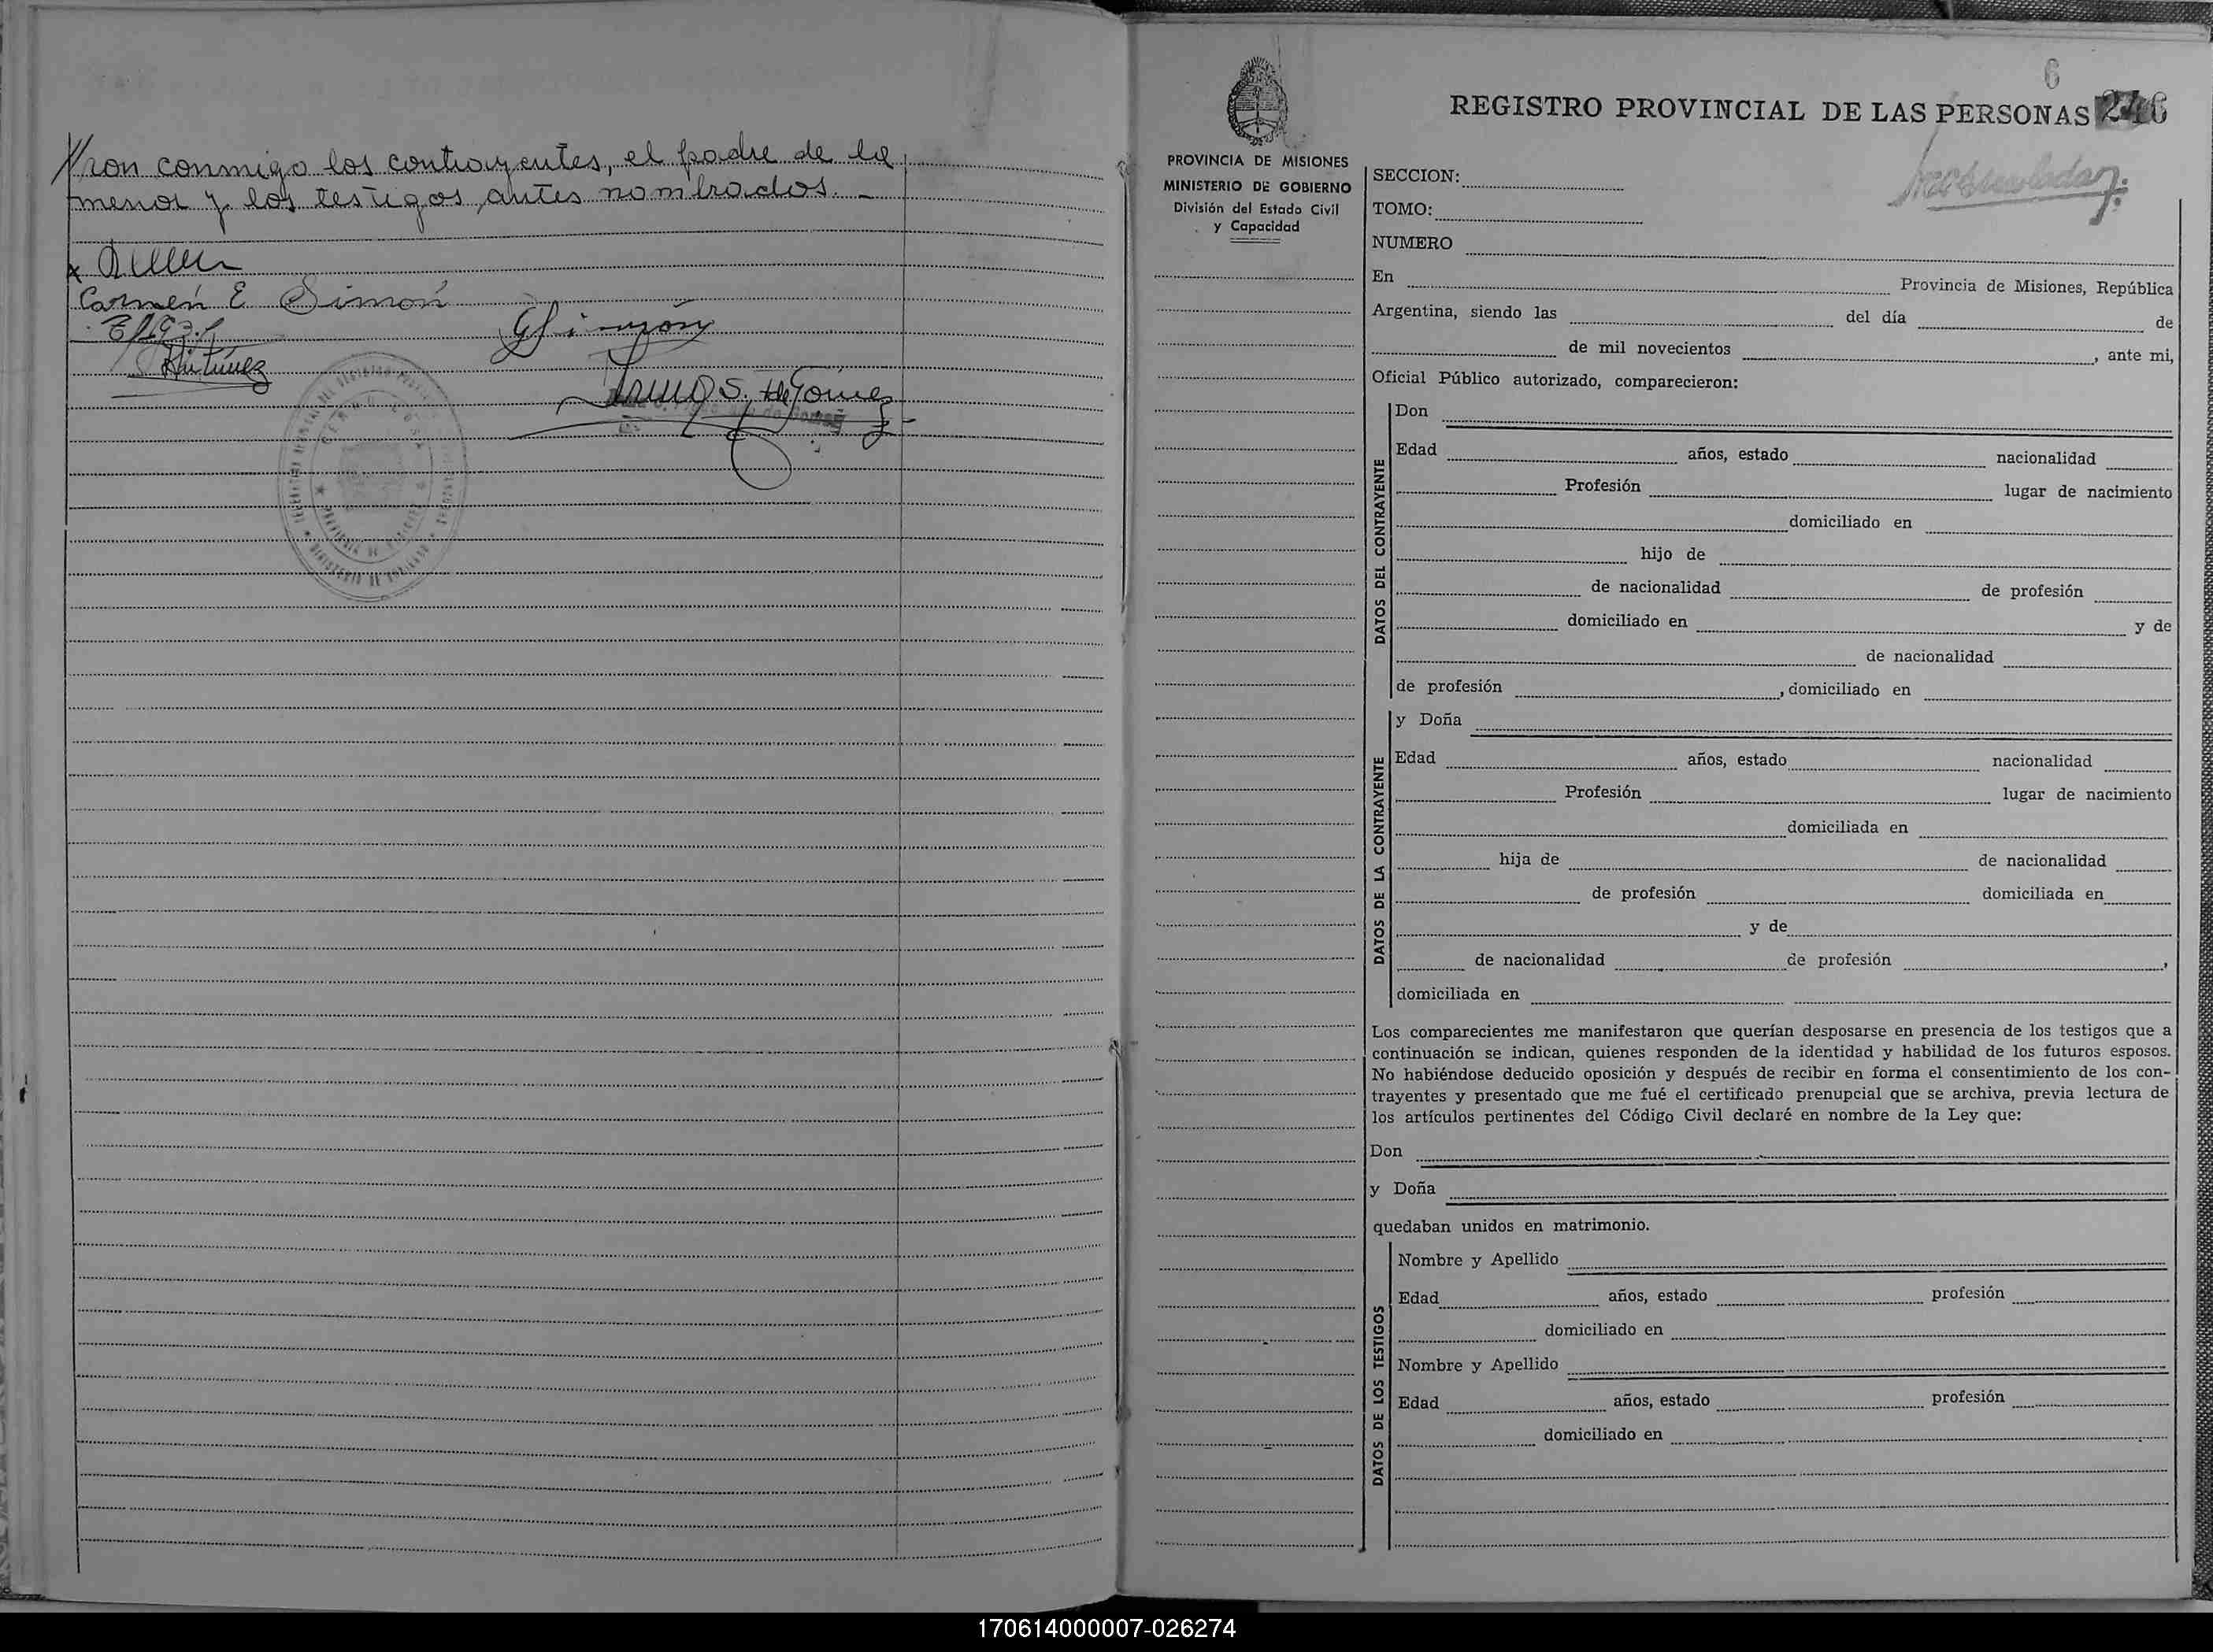 ron conmigo los contrayentes, el padre de la
menor y los testigos antes nombrados. —
Carmen E Simón
6
REGISTRO PROVINCIAL DE LAS PERSONAS 246
PROVINCIA DE MISIONES
MINISTERIO DE GOBIERNO
División del Estado Civil
y Capacidad
SECCION:
TOMO:
NUMERO
En Provincia de Misiones, República
Argentina, siendo las del día de
de mil novecientos , ante mi,
Oficial Público autorizado, comparecieron:
DATOS DEL CONTRAYENTE
Don
Edad años, estado nacionalidad
Profesión lugar de nacimiento
domiciliado en
hijo de
de nacionalidad de profesión
domiciliado en y de
de nacionalidad
de profesión , domiciliado en
DATOS DE LA CONTRAYENTE
y Doña
Edad años, estado nacionalidad
Profesión lugar de nacimiento
domiciliada en
hija de de nacionalidad
de profesión domiciliada en
y de
de nacionalidad de profesión ,
domiciliada en
Los comparecientes me manifestaron que querían desposarse en presencia de los testigos que a
continuación se indican, quienes responden de la identidad y habilidad de los futuros esposos.
No habiéndose deducido oposición y después de recibir en forma el consentimiento de los con-
trayentes y presentado que me fué el certificado prenupcial que se archiva, previa lectura de
los artículos pertinentes del Código Civil declaré en nombre de la Ley que:
Don
y Doña
quedaban unidos en matrimonio.
DATOS DE LOS TESTIGOS
Nombre y Apellido
Edad años, estado profesión
domiciliado en
Nombre y Apellido
Edad años, estado profesión
domiciliado en
170614000007-026274